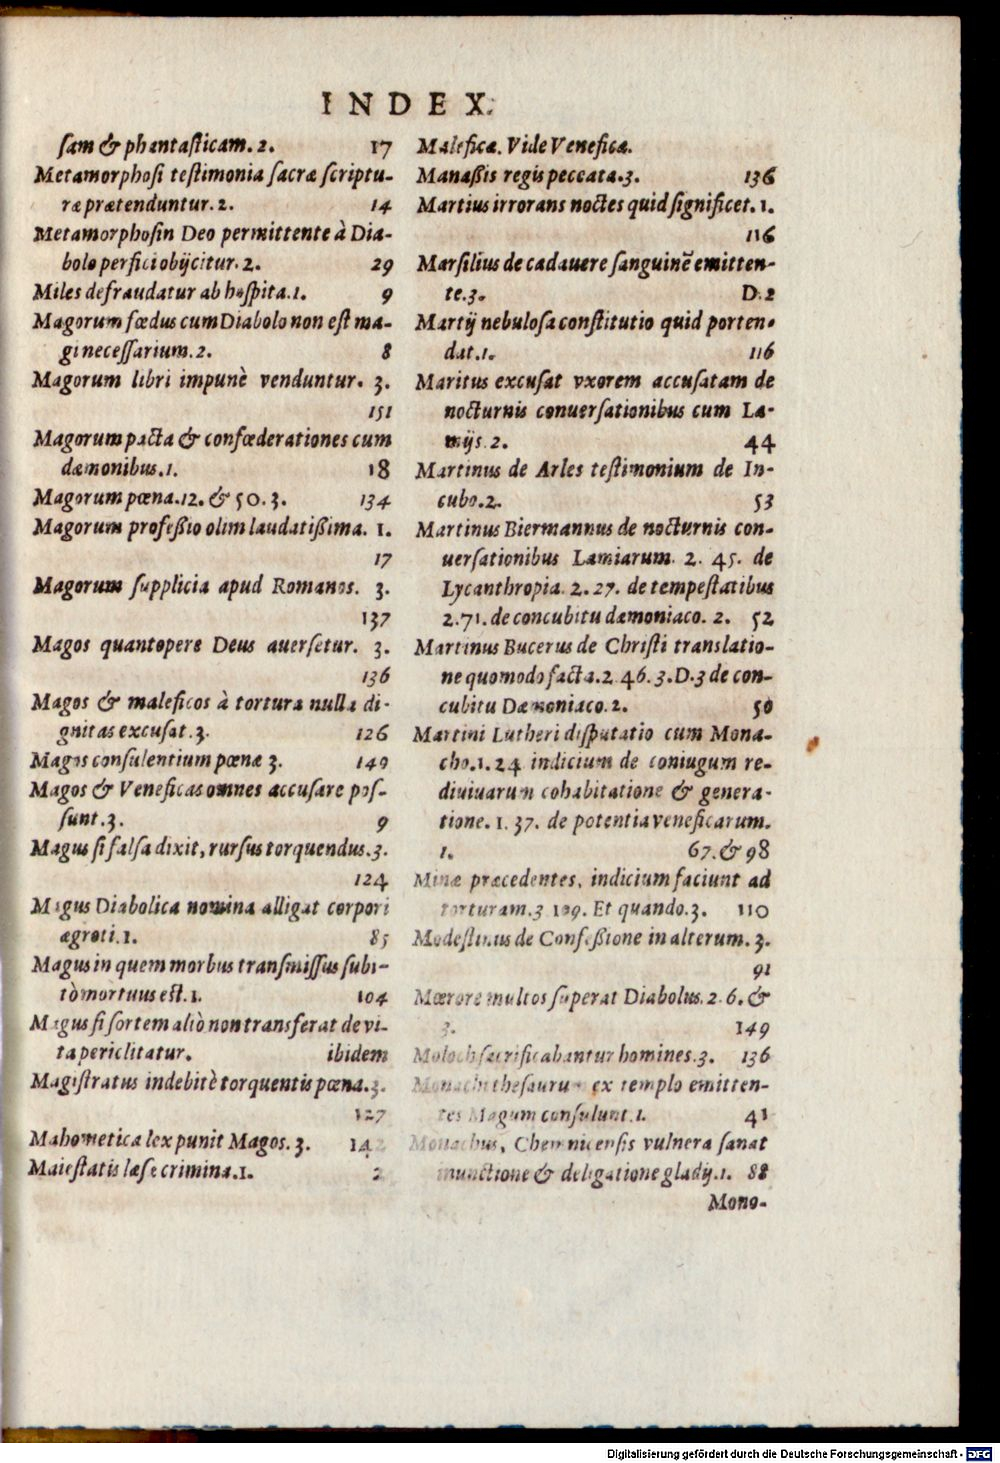 INDEX.
ſam & phantaſticam. 2. 17
Metamorphoſi teſtimonia ſacræ ſcriptu-
ræ prætenduntur. 2. 14
Metamorphoſin Deo permittente à Dia-
bolo perfici obijcitur. 2. 29
Miles defraudatur ab hoſpita. 1. 9
Magorum fœdus cum Diabolo non eſt ma-
gi neceſſarium. 2. 8
Magorum libri impunè venduntur. 3.
151
Magorum pacta & confœderationes cum
dæmonibus. 1. 18
Magorum pœna. 12. & 50. 3. 134
Magorum profeßio olim laudatißima. 1.
17
Magorum ſupplicia apud Romanos. 3.
137
Magos quantopere Deus auerſetur. 3.
136
Magos & maleficos à tortura nulla di-
gnitas excuſat. 3. 126
Magos conſulentium pœnæ 3. 149
Magos & Veneficas omnes accuſare poſ-
ſunt. 3. 9
Magus ſi falſa dixit, rurſus torquendus. 3.
124
Magus Diabolica nomina alligat corpori
ægroti. 1. 85
Magus in quem morbus tranſmiſſus ſubi-
tò mortuus eſt. 1. 104
Magus ſi ſortem aliò non transferat de vi-
ta periclitatur. ibidem
Magiſtratus indebitè torquentis pœna. 3.
127
Mahometica lex punit Magos. 3. 142
Maieſtatis læſæ crimina. 1. 2
Maleficæ. Vide Veneficæ.
Manaßis regis peccata. 3. 136
Martius irrorans noctes quid ſignificet. 1.
116
Marſilius de cadauere ſanguinẽ emitten-
te. 3. D. 2
Martij nebuloſa conſtitutio quid porten-
dat. 1. 116
Maritus excuſat vxorem accuſatam de
nocturnis conuerſationibus cum La-
mijs. 2. 44
Martinus de Arles teſtimonium de In-
cubo. 2. 53
Martinus Biermannus de nocturnis con-
uerſationibus Lamiarum. 2. 45. de
Lycanthropia. 2. 27. de tempeſtatibus
2. 71. de concubitu dæmoniaco. 2. 52
Martinus Bucerus de Chriſti translatio-
ne quomodo facta. 2 46. 3. D. 3 de con-
cubitu Dæmoniaco. 2. 50
Martini Lutheri diſputatio cum Mona-
cho. 1. 24 indicium de coniugum re-
diuiuarum cohabitatione & genera-
tione. 1. 37. de potentia veneficarum.
1. 67. & 98
Minæ præcedentes, indicium faciunt ad
torturam. 3 109. Et quando. 3. 110
Modeſtinus de Confeßione in alterum. 3.
91
Mœrore multos ſuperat Diabolus. 2. 6. &
3. 149
Moloch ſacrificabantur homines. 3. 136
Monachi theſaurum ex templo emitten-
tes Magum conſulunt. 1. 41
Monachus, Chemnicenſis vulnera ſanat
inunctione & deligatione gladij. 1. 88
Mono-
Digitalisierung gefördert durch die Deutsche Forschungsgemeinschaft - DFG